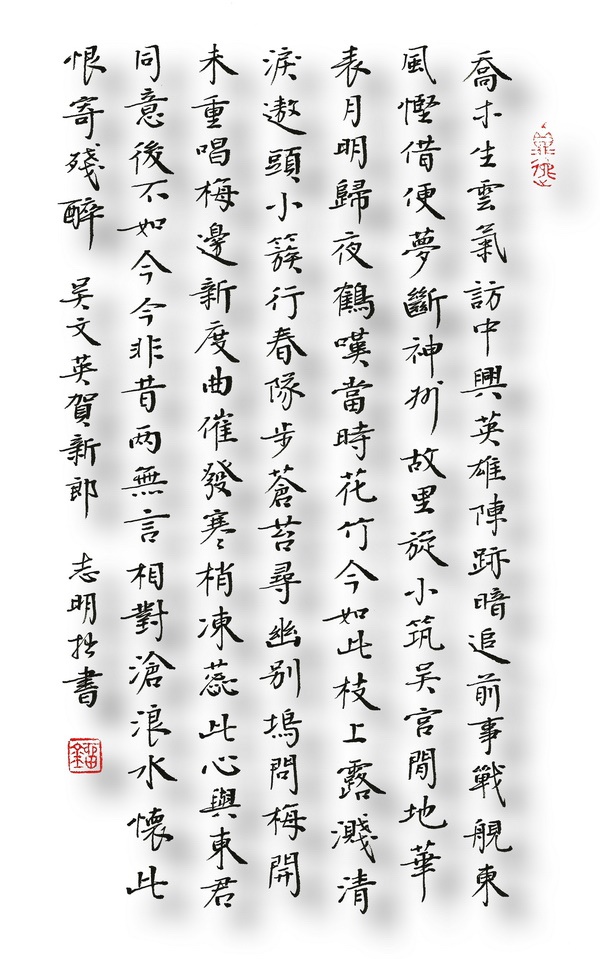 喬木生雲氣訪中興英雄陳跡暗追前事戰舰東
風慳借便夢斷神州故里旋小筑吴宮閒地華
表月明歸夜鶴嘆當時花竹今如此枝上露濺清
淚遨頭小簇行春隊步蒼苔尋幽别塢問梅開
未重唱梅邊新度曲催發寒梢凍蕊此心與東君
同意後不如今今非昔两無言相對滄浪水懷此
恨寄殘醉 吴文英賀新郎 志明拙書